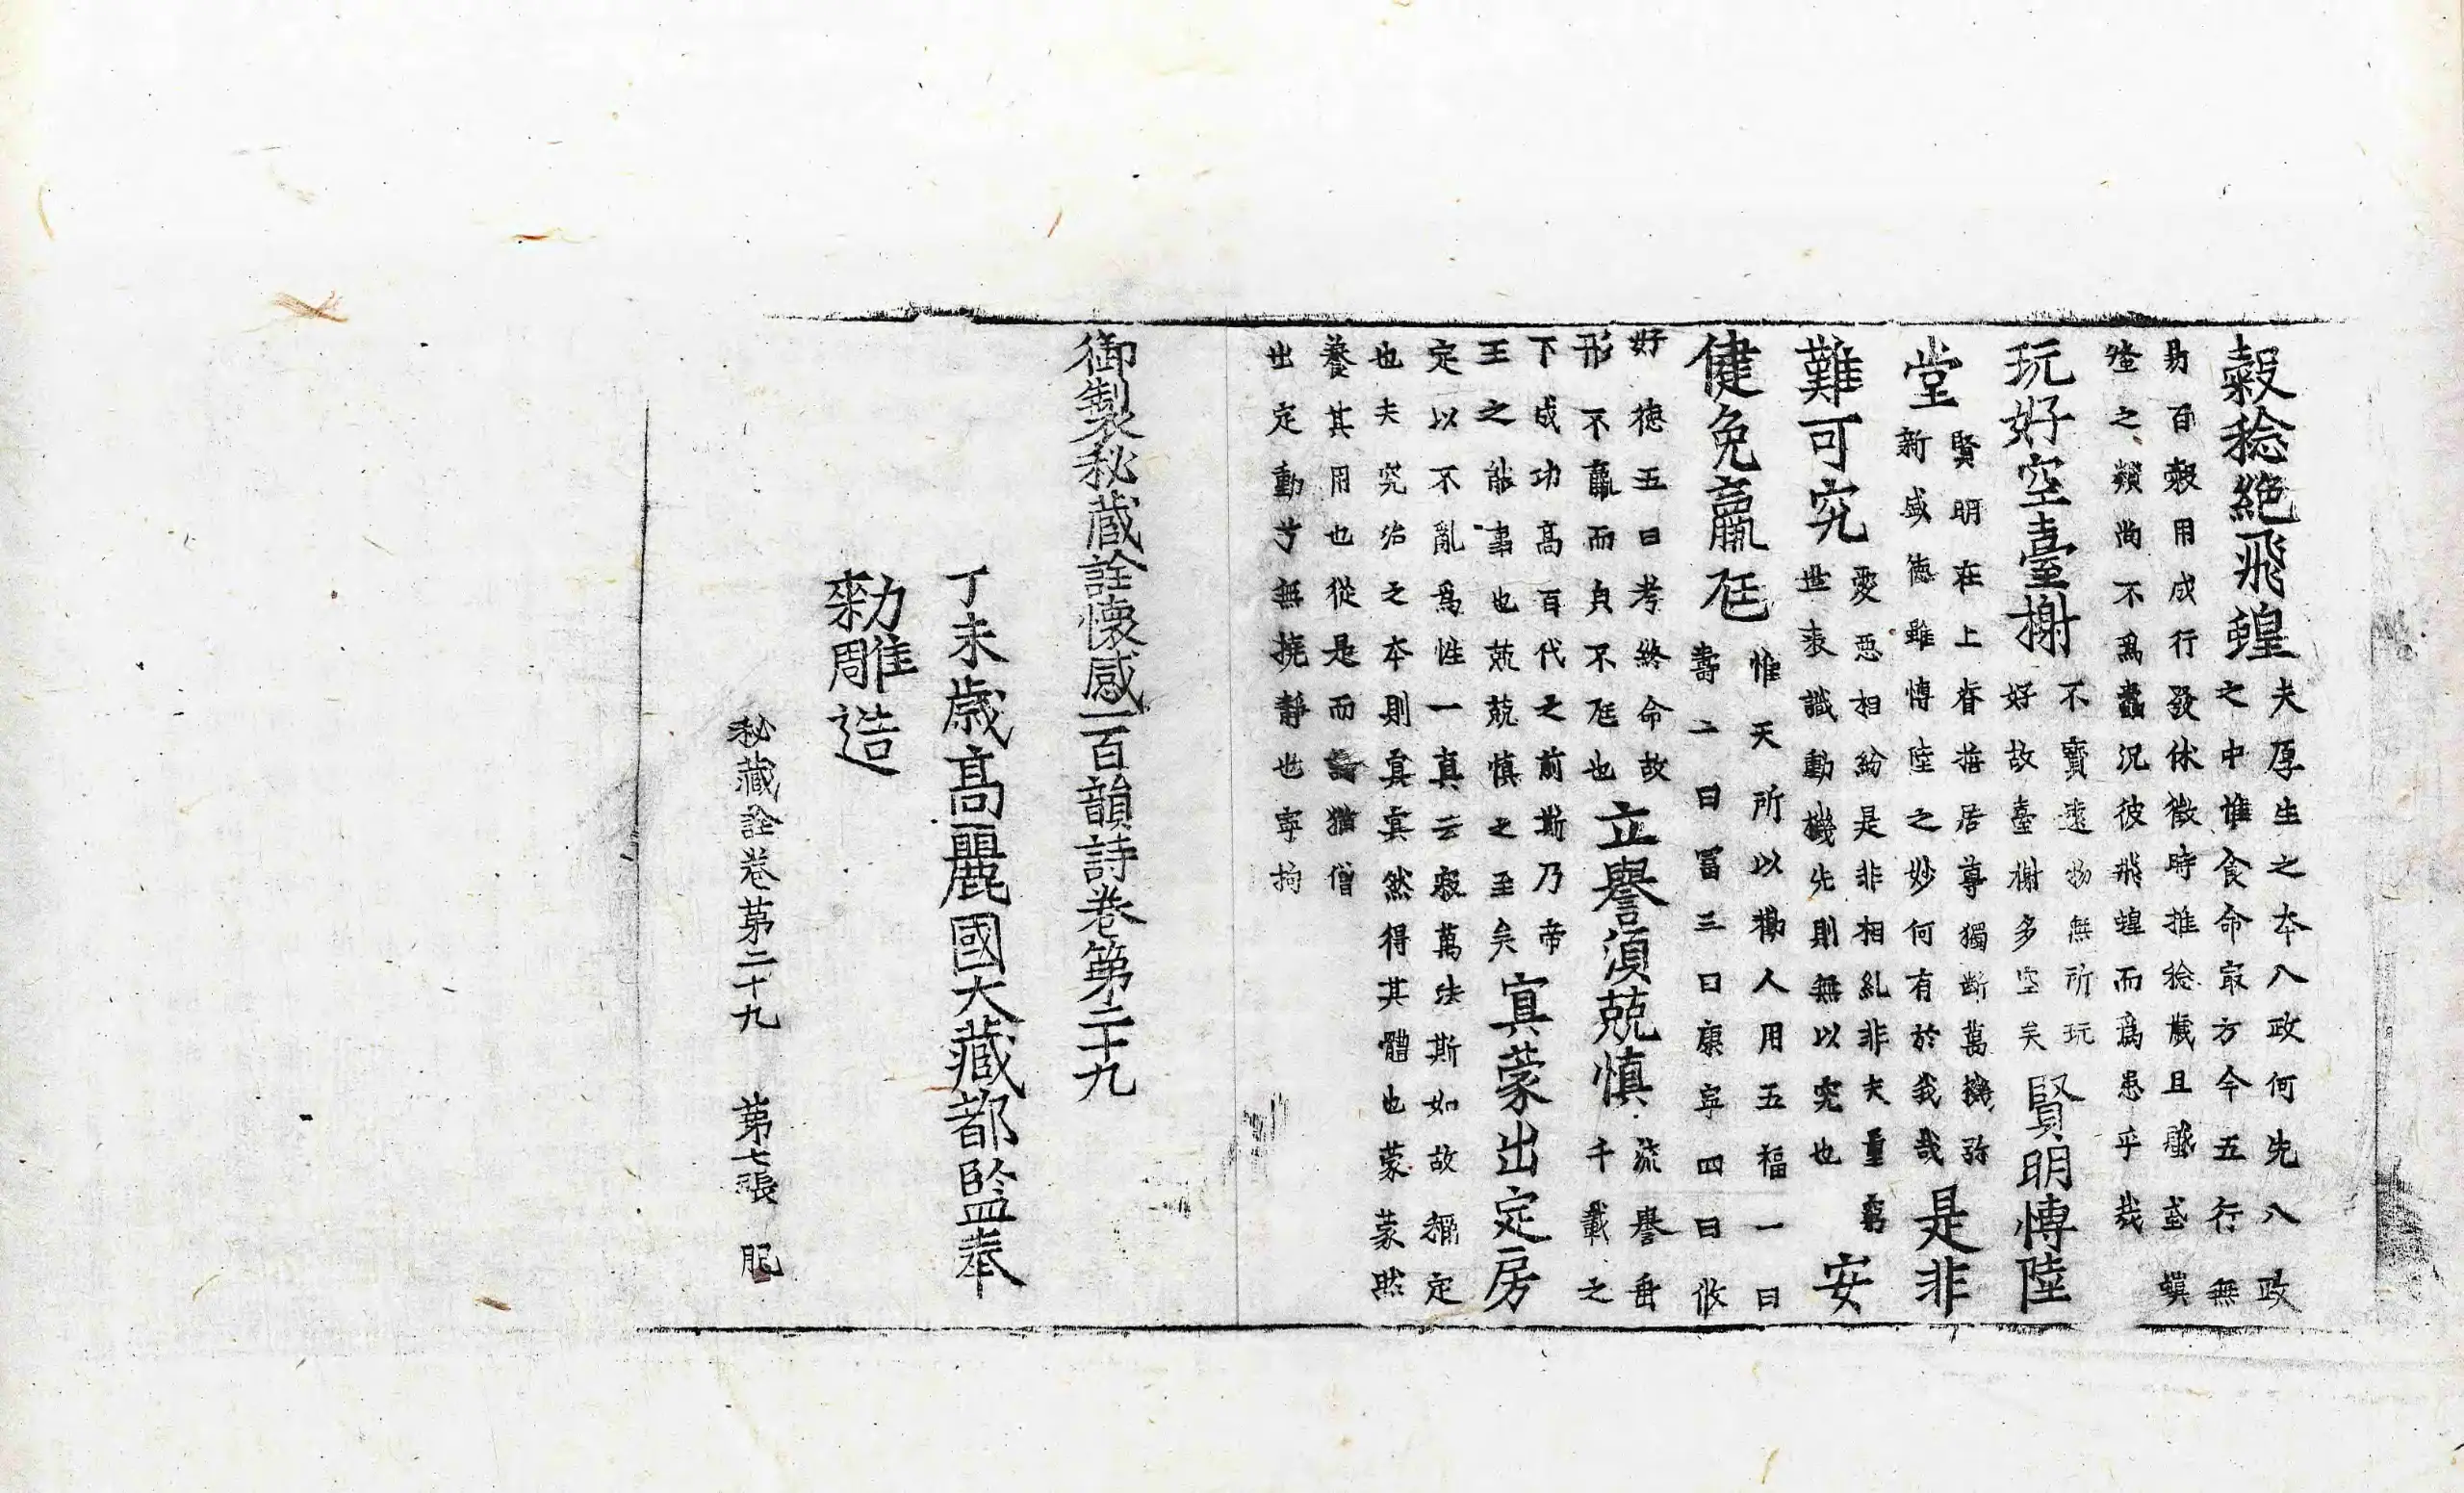 穀稔絕飛蝗夫厚生之本八政何先八政之中惟食命㝡方今五行無
易百穀用成行發休徵時推稔歲且蝱螟之類尚不爲蠹況彼飛蝗而爲患乎哉
玩好空臺榭不寶遠物無所玩好故臺榭多空矣賢明博陸
堂賢明在上眷措居尊獨斷萬機弥新盛德雖博陸之妙何有於我哉是非
難可究愛惡相紛是非相糺非夫重世表識動機先則無以究也安
健免羸尪惟天所以勸人用五福一曰壽二曰富三曰康寧四曰攸
好德五曰考終命故形不羸而貞不尪也立譽須兢慎流譽垂千載之
下成功高百代之前斯乃帝王之能事也兢兢慎之至矣寘蒙出定房
定以不亂爲性一真云寂萬法斯如故稱定也夫究治之本則寘寘然得其體也蒙蒙然
養其用也從是而論猶僧出定動亦無撓靜也寧拘
御製秘蔵詮懷感一百韻詩卷第二十九
丁未歲高麗國大藏都監奉
勑雕造
秘藏詮卷第二十九 第七張 肥